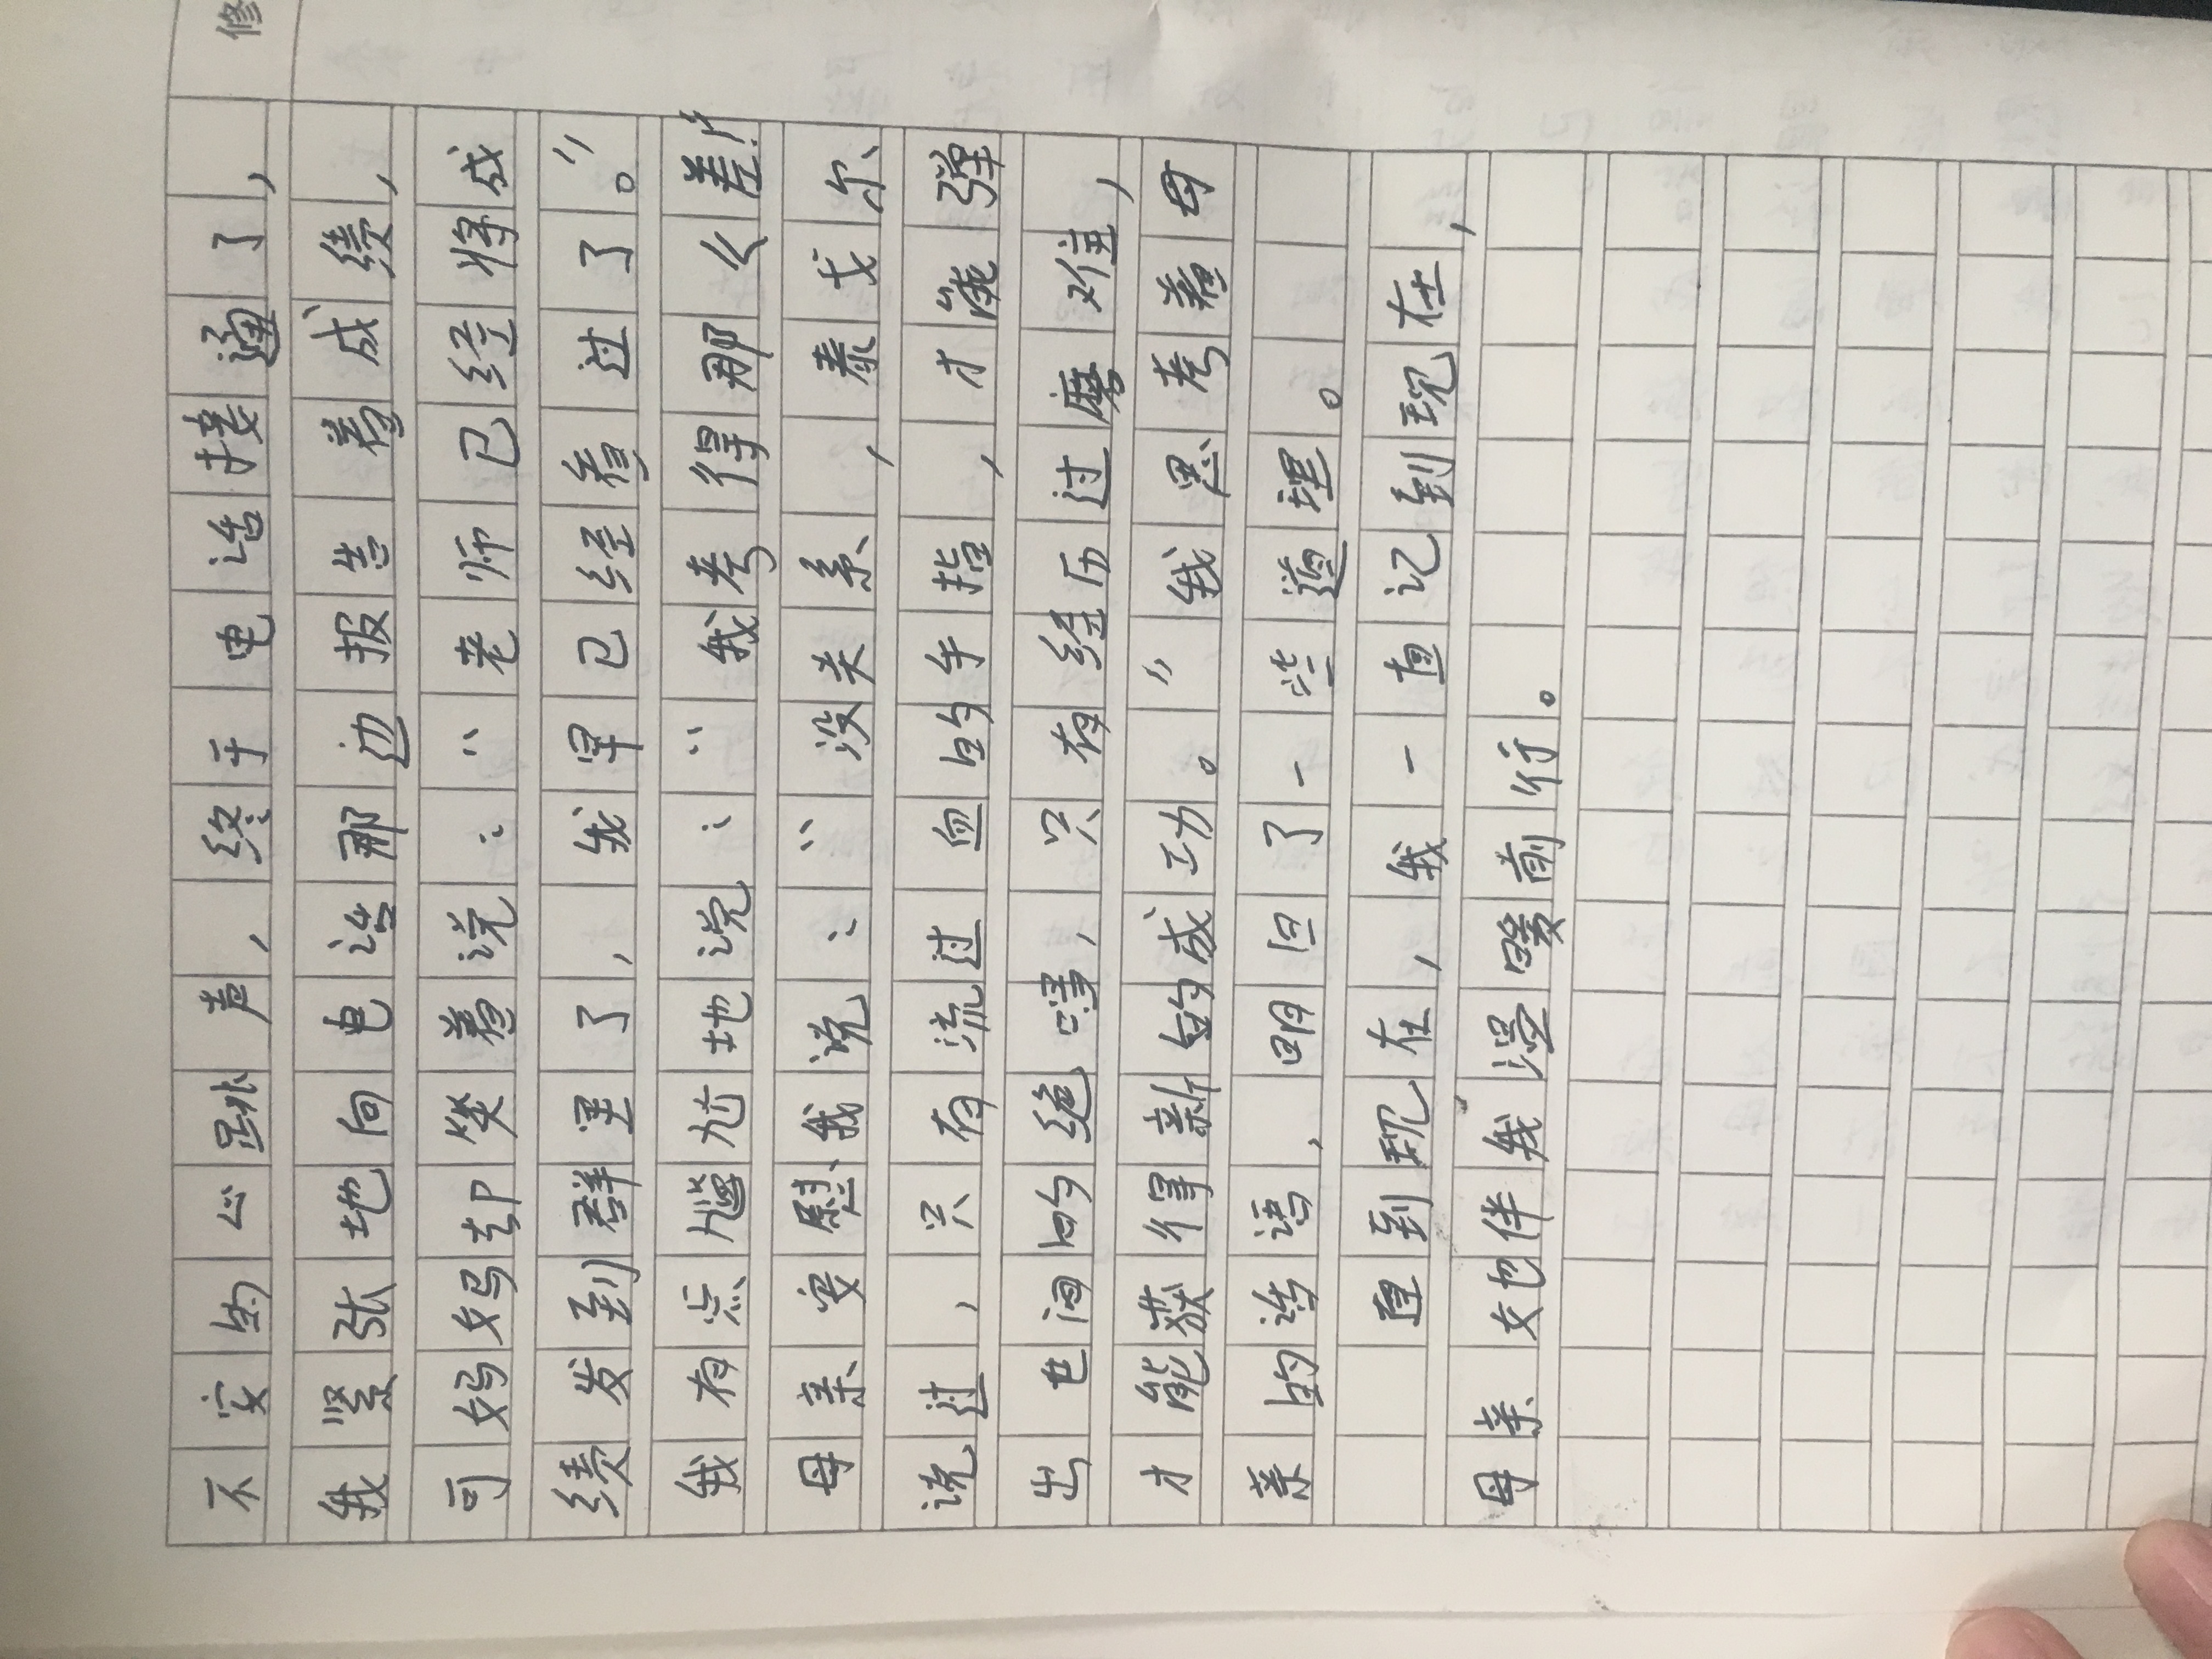 修
不安的心跳声,终于电话接通了,
我紧张地向电话那边报告着成绩,
可妈妈却笑着说:“老师已经将成
绩发到群里了,我早已经看过了。”
我有点尴尬地说:“我考得那么差!”
母亲安慰我说:“没关系,泰戈尔
说过,只有流过血的手指,才能弹
出世间的绝唱,只有经历过磨难,
才能获得新的成功。”我思考着母
亲的话语,明白了一些道理。
直到现在,我一直记到现在,
母亲也伴我漫暖前行。